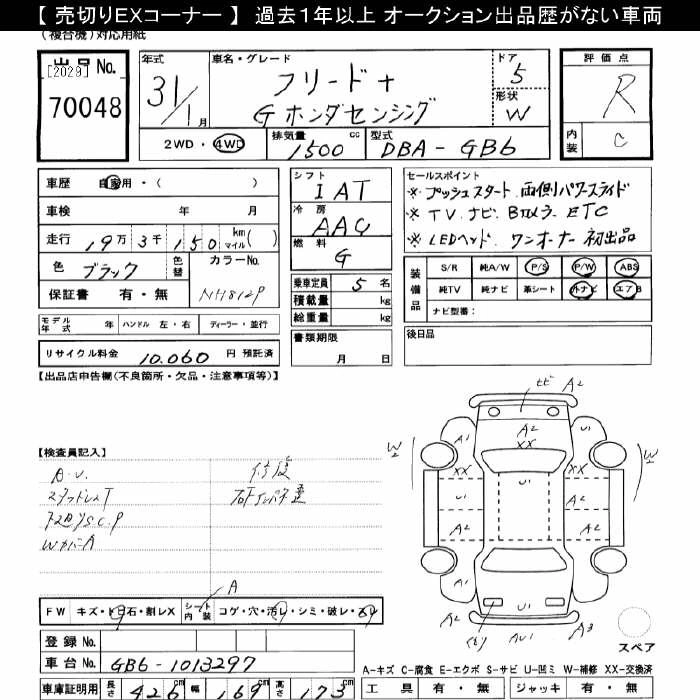 【 売切りEXコーナー 】 過去１年以上 オークション出品歴がない車両
(複合機)対応用紙
出品 No. [2029] 70048
年式 31/1月
車名・グレード フリード+
Gホンダセンシング
ドア 5
形状 W
評価点 R
内装 C
2WD・4WD 排気量 1500 cc 型式 DBA-GB6
車歴 自家用・( )
車検 年 月
走行 19万3千150 km マイル( )
色 ブラック 色替 カラーNo. NH812P
保証書 有・無
モデル年式 年 ハンドル 左・右 ディーラー・並行
リサイクル料金 10.060 円 預託済
シフト IAT
冷房 AAC
燃料 G
乗車定員 5 名
積載量 kg
総重量 kg
書類期限 月 日
セールスポイント
※ プッシュスタート 両側パワースライド
※ TV ナビ Bカメラ ETC
※ LEDヘッド ワンオーナー 初出品
装備品 S/R 純A/W P/S P/W ABS
純TV 純ナビ 革シート 外ナビ エアB
ナビ型番:
後日品
【出品店申告欄(不良箇所・欠品・注意事項等)】
【検査員記入】
A・U.
スタッドレスT
WカバーA
修復
A
FW キズ・トビ石・割レX シート内装 コゲ・穴・汚レ・シミ・破レ・スレ
登録 No.
車台 No. GB6-1013297
車庫証明用 長さ 426 cm 幅 169 cm 高さ 173 cm
A2
A2
XX
A1
U1
W2
W2
XX
XX
U1
U1
A2
A2
A2
A2
U1
A2
AU1
A3
スペア
A-キズ C-腐食 E-エクボ S-サビ U-凹ミ W-補修 XX-交換済
工具 有・無 ジャッキ 有・無